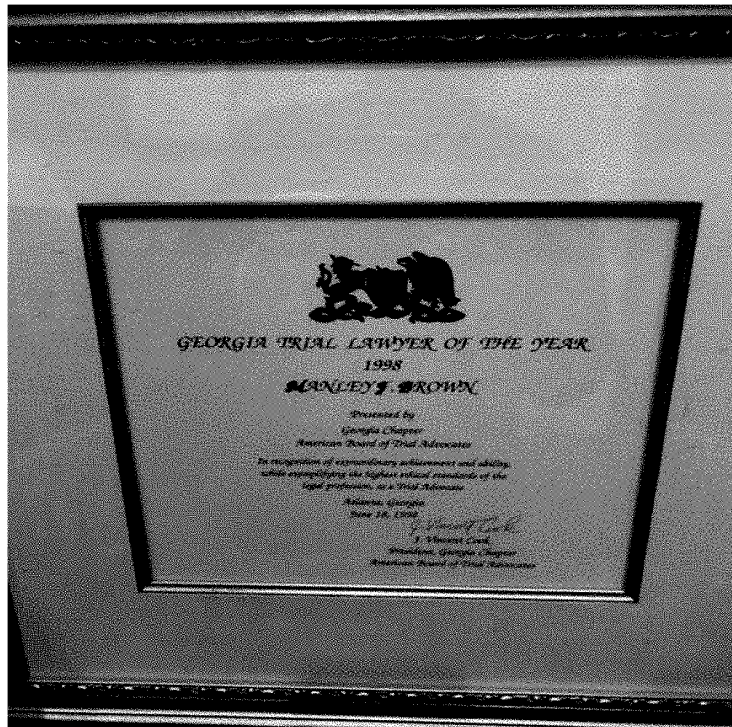 GEORGIA TRIAL LAWYER OF THE YEAR
1998
MANLEY F. BROWN
Presented by
Georgia Chapter
American Board of Trial Advocates
In recognition of extraordinary achievement and ability,
while exemplifying the highest ethical standards of the
legal profession, as a Trial Advocate
Atlanta, Georgia
June 18, 1998
J. Vincent Cook
J. Vincent Cook
President, Georgia Chapter
American Board of Trial Advocates